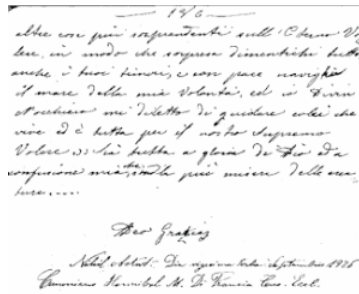 — 136 —
altre cose più sorprendenti sull'Eterno Vo
lere, in modo che sorpresa dimentichi tutto
anche i tuoi timori, e con pace navighi
il mare della mia Volontà, ed io Divin
Nocchiero mi diletto di guidare colei che
vive ed è tutta per il nostro Supremo
Volere. Sia tutto a gloria di Dio ed a
confusione mia, che sono la più misera delle crea
ture....
Deo Gratias
Nihil obstat. Die Septembris 1926
Canonicus Hannibal M. Di Francia Cens. Eccl.